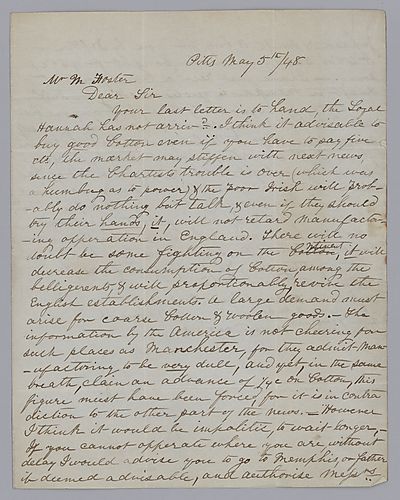 Pitts May 5th/48
Mr M Foster
Dear Sir
Your last letter is to hand, the Loyal
Hannah has not arrivd. I think it advisable to
buy good Cotton even if you have to pay five
cts, the market may stiffen with next news
since the Chartists trouble is over (which was
a humbug as to power) & the poor Irish will prob-
-ably do nothing but talk, & even if they should
try their hands, it, will not retard manufactor-
-ing opperation in England. There will no
doubt be some fighting on the Continent, it will
decrease the consumption of Cotton among the
belligerents, & will proportionably revive the
English establishments. A large demand must
arise for coarse Cotton & woolen goods. — The
information by the America is not cheering for
such places as Manchester, for they admit Man-
-ufactoring to be very dull, and yet, in the same
breath, claim an advance of on Cotton, this
figure must have been forced for it is in contra
diction to the other part of the news. — However
I think it would be impolitic to wait longer,-
If you cannot opperate where you are without
delay I would advise you to go to Memphis, or farther
if deemed advisable, and authorise Messrs